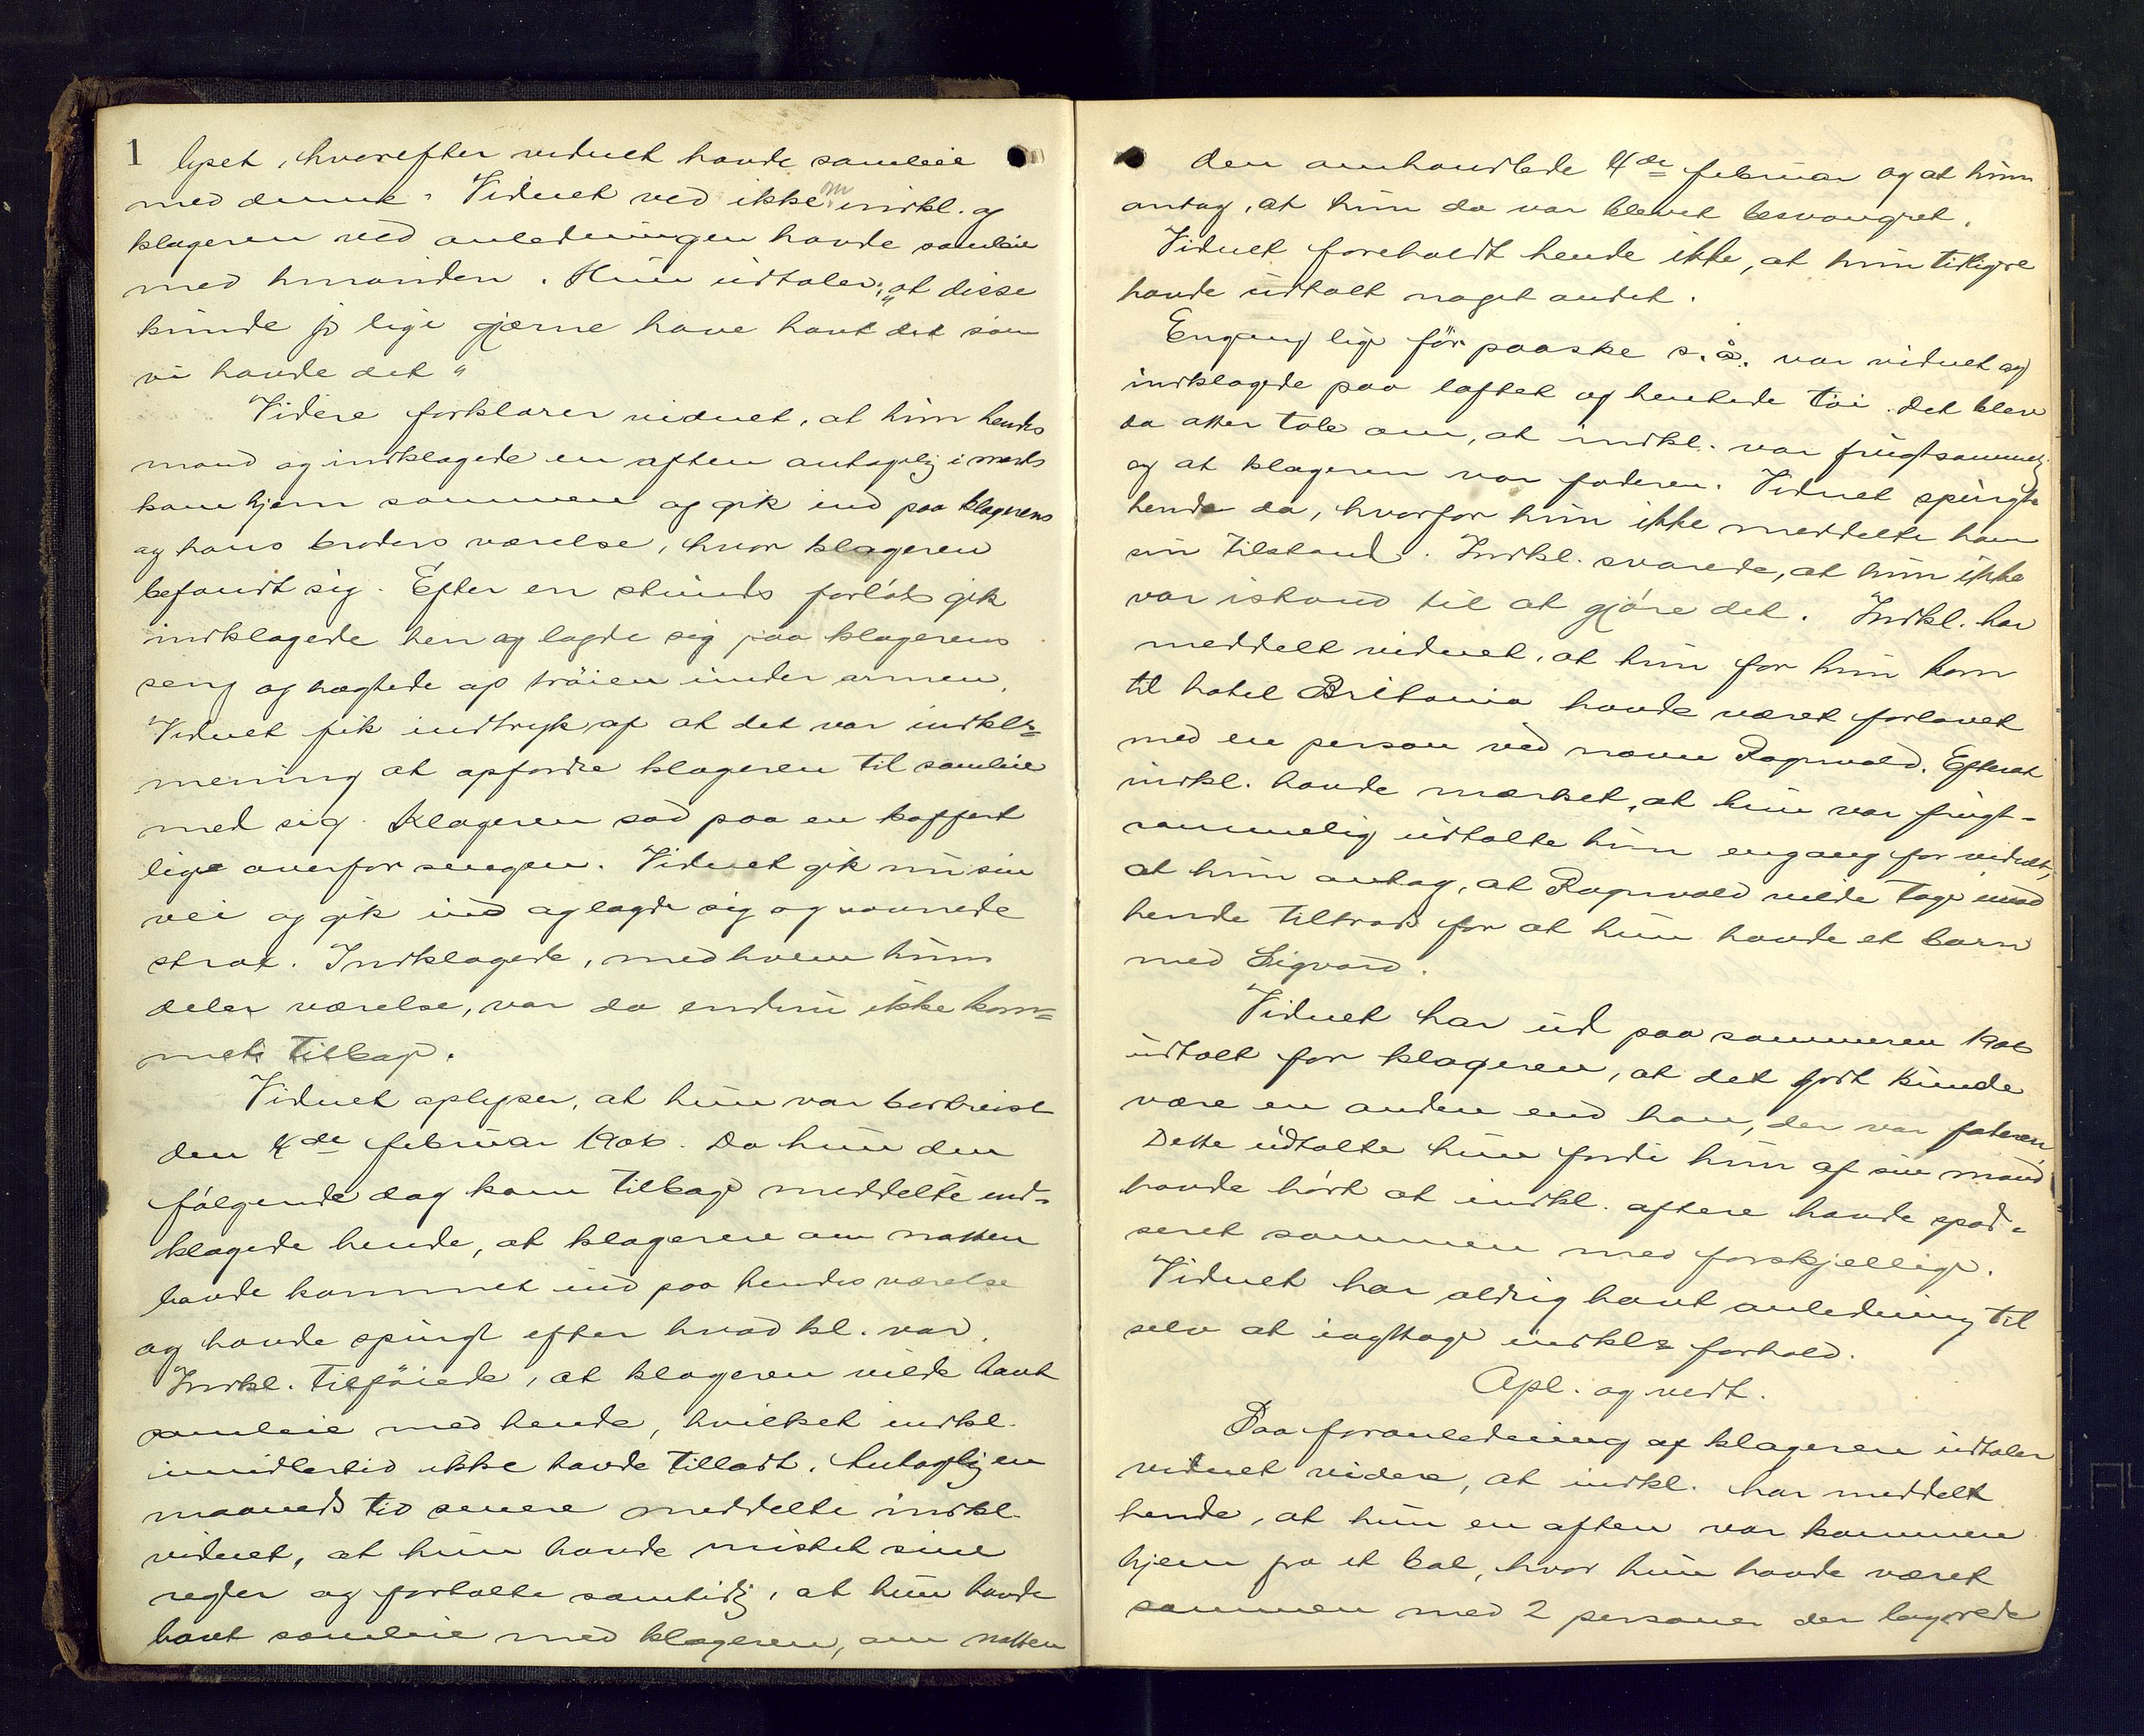 1
lyset, hvorefter vidnet havde samleie
med denne. Vidnet ved ikke om indkl. og
klageren ved anledningen havde samleie
med hinanden. Hun udtaler: "at disse
kunde jo lige gjærne have havt det som
vi havde det"
Videre forklarer vidnet, at hun hendes
mand og indklagede en aften antagelig i marts
kom hjem sammen og gik ind paa klagerens
og hans broders værelse, hvor klageren
befandt sig. Efter en stunds forløb gik
indklagede hen og lagde sig paa klagerens
seng og hægtede op trøien under armen.
Vidnet fik indtryk af at det var indkl's
mening at opfordre klageren til samleie
med sig. Klageren sad paa en koffert
lige overfor sengen. Vidnet gik nu sin
vei og gik ind og lagde sig og sovnede
strax. Indklagede, med hvem hun
deler værelse, var da endnu ikke kom=
met tilbage.
Vidnet oplyser, at hun var bortreist
den 4de februar 1906. Da hun den
følgende dag kom tilbage meddelte ind=
klagede hende, at klageren om natten
havde kommet ind paa hendes værelse
og havde spurgt efter hvad kl. var.
Indkl. tilføiede, at klageren vilde havt
samleie med hende, hvilket indkl.
imidlertid ikke havde tilladt. Antagelig en
maaneds tid senere meddelte indkl.
vidnet, at hun havde mistet sine
regler og fortalte samtidig, at hun havde
havt samleie med klageren, om natten
den omhandlede 4de februar og at hun
antog, at hun da var blevet besvangret.
Vidnet foreholdt hende ikke, at hun tidligere
havde udtalt noget andet.
Engang lige før paaske s. å. var vidnet og
indklagede paa loftet og hentede tøi. Det blev
da atter tale om, at indkl. var frugtsommelig
og at klageren var faderen. Vidnet spurgte
hende da, hvorfor hun ikke meddelte ham
sin tilstand. Indkl. svarede, at hun ikke
var istand til at gjøre det. Indkl. har
meddelt vidnet, at hun før hun kom
til hotel Britania havde været forlovet
med en person ved navn Ragnvald. Efterat
indkl. havde mærket, at hun var frugt-
sommelig udtalte hun engang for vidnet,
at hun antog, at Ragnvald vilde tage imod
hende tiltrods for at hun havde et barn
med Sigvard.
Vidnet har ud paa sommeren 1906
udtalt for klageren, at det godt kunde
være en anden end han, der var faderen
Dette udtalte hun fordi hun af sin mand
havde hørt at indkl. oftere havde spad=
seret sammen med forskjellige.
Vidnet har aldrig havt anledning til
selv at iagttage indkls forhold.
Opl. og vedt.
Paa foranledning af klageren udtaler
vidnet videre, at indkl. har meddelt
hende, at hun en aften var kommen
hjem fra et bal, hvor hun havde været
sammen med 2 personer der logerede